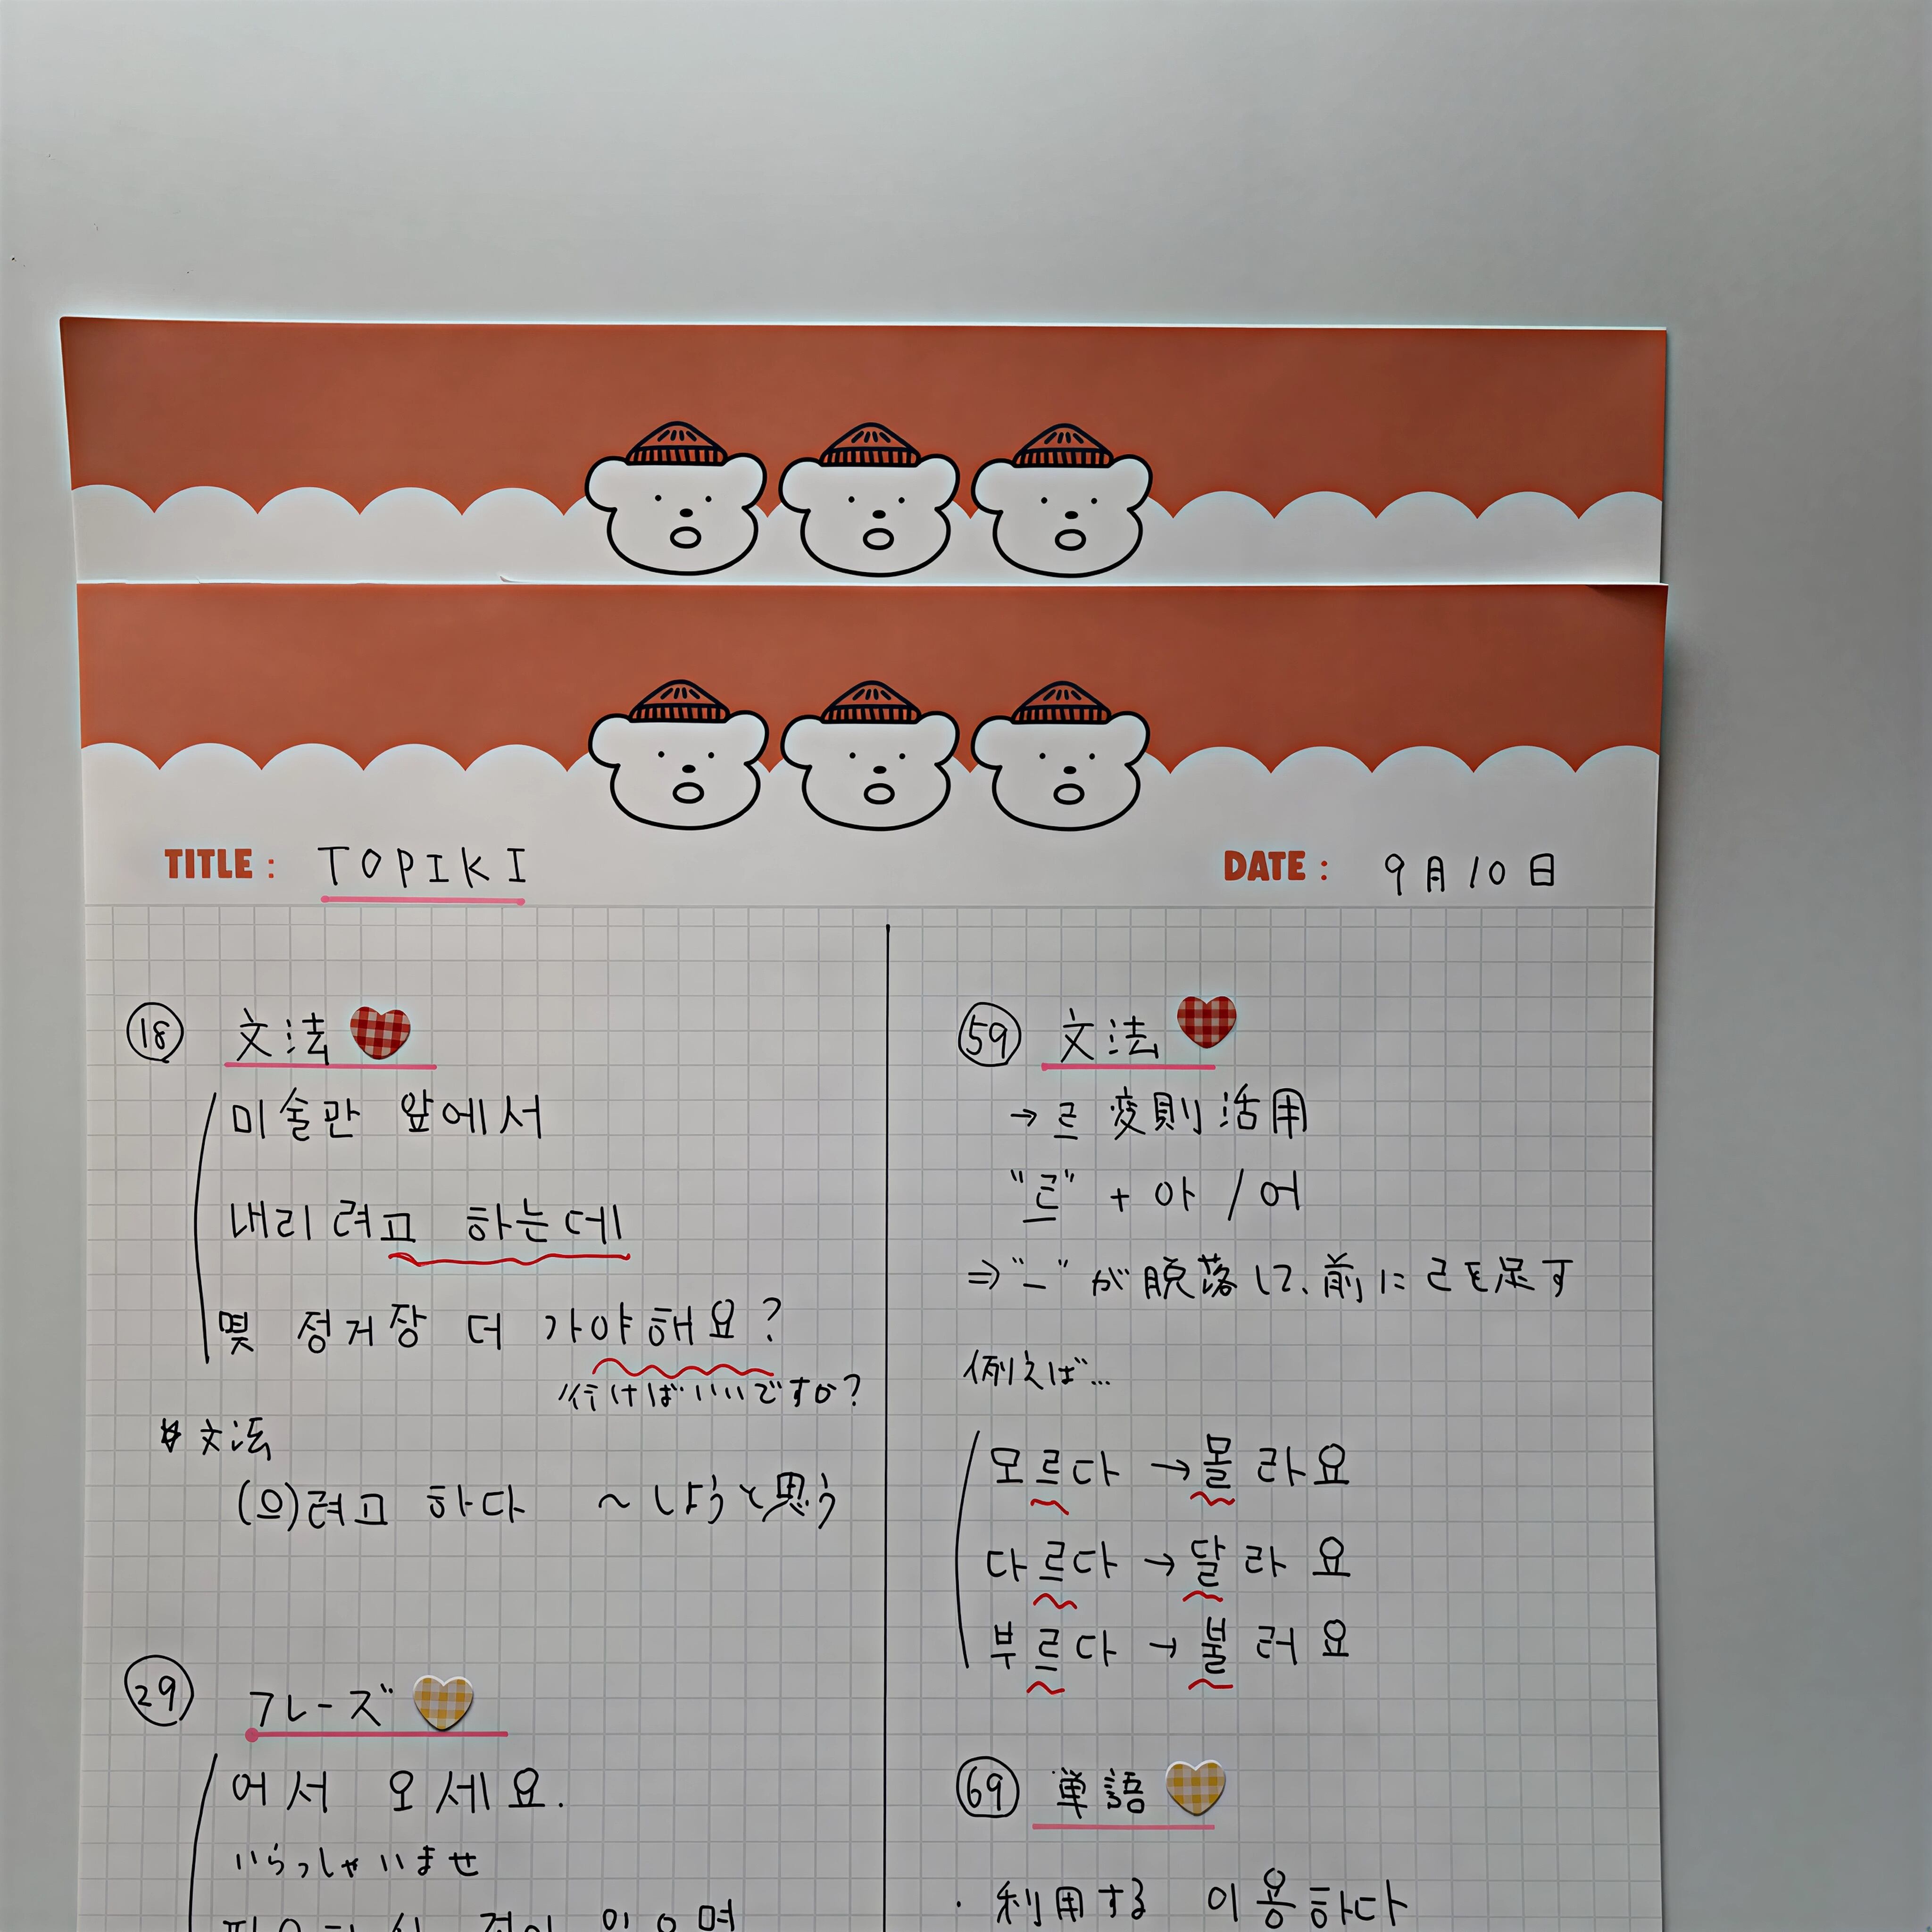 TITLE : TOPIK I
DATE : 9月10日
18 文法
미술만 앞에서
내리려고 하는데
몇 정거장 더 가야해요?
行けばいいですか?
文法
(으)려고 하다 ～しようと思う
29 フレーズ
어서 오세요.
いらっしゃいませ
59 文法
→르 変則活用
"르" + 아 / 어
⇒"ー"が脱落して、前にㄹを足す
例えば…
모르다 → 몰라요
다르다 → 달라요
부르다 → 불러요
69 単語
・利用する 이용하다